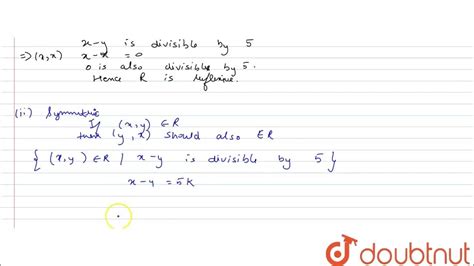 x-y is divisible by 5
⇒ (x,x) x-x = 0
0 is also divisible by 5.
Hence R is reflexive.
(ii) Symmetric
If (x,y) ∈ R
then (y,x) should also ∈ R
{ (x,y) ∈ R / x-y is divisible by 5 }
x-y = 5K
doubtnut